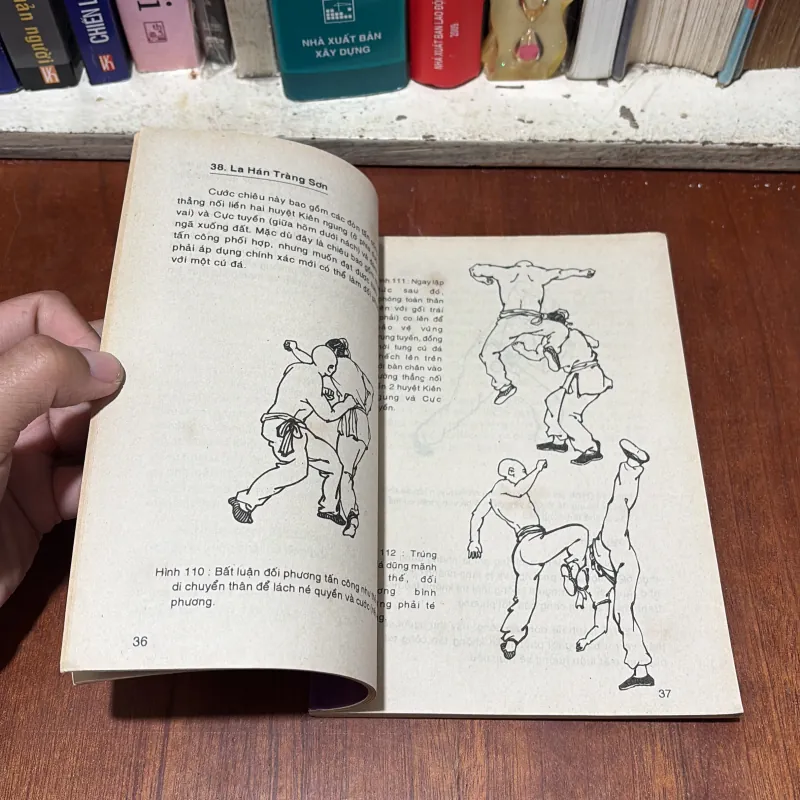 ản người
CHIẾN L
i
NHÀ XUẤT BẢN
XÂY DỰNG
NHÀ XUẤT BẢN LAO ĐỘ
2005
38. La Hán Tràng Sơn
Cước chiêu này bao gồm các đòn tấn
thẳng nối liền hai huyệt Kiên ngung (ở phía
vai) và Cực tuyền (giữa hõm dưới nách) và
ngã xuống đất. Mặc dù đây là chiêu bao gồm
tấn công phối hợp, nhưng muốn đạt được
phải áp dụng chính xác mới có thể làm đối
với một cú đá.
Hình 110 : Bất luận đối phương tấn công như
di chuyển thân để lách né quyền và cước
phương.
36
nh 111 : Ngay lập
ức sau đó,
phóng toàn thân
ên với gối trái
phải) co lên để
ảo vệ vùng
rung tuyến, đồng
hời tung cú đá
hếch lên trên
ới bàn chân vào
ường thẳng nối
ền 2 huyệt Kiên
gung và Cực
yền.
112 : Trúng
á dũng mãnh
thế, đối
ơng bình
ng phải té
37